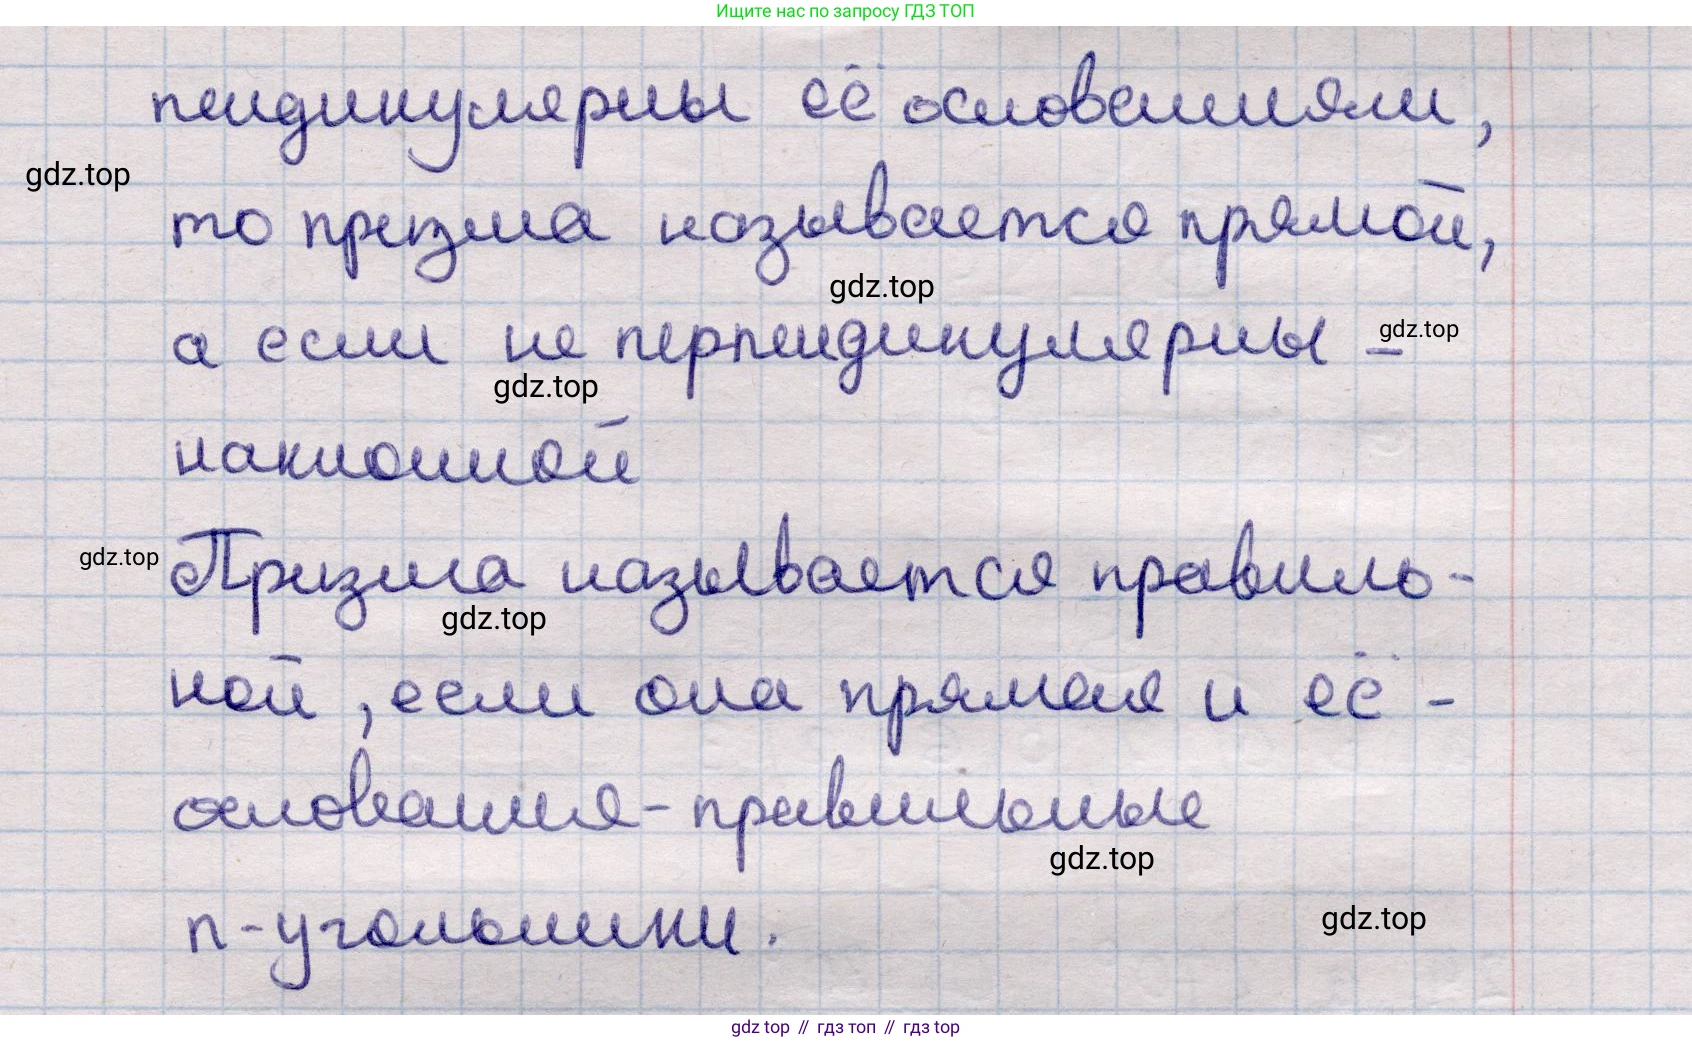 Ищите нас по запросу ГДЗ ТОП
пендикулярны её основаниями,
gdz.top
то призма называется прямой,
gdz.top
а если не перпендикулярны -
gdz.top
gdz.top
наклонной
gdz.top
Призма называется правиль-
gdz.top
ной, если она прямая и её -
основания - правильные
gdz.top
n-угольники.
gdz.top
gdz top // гдз топ // гдз top